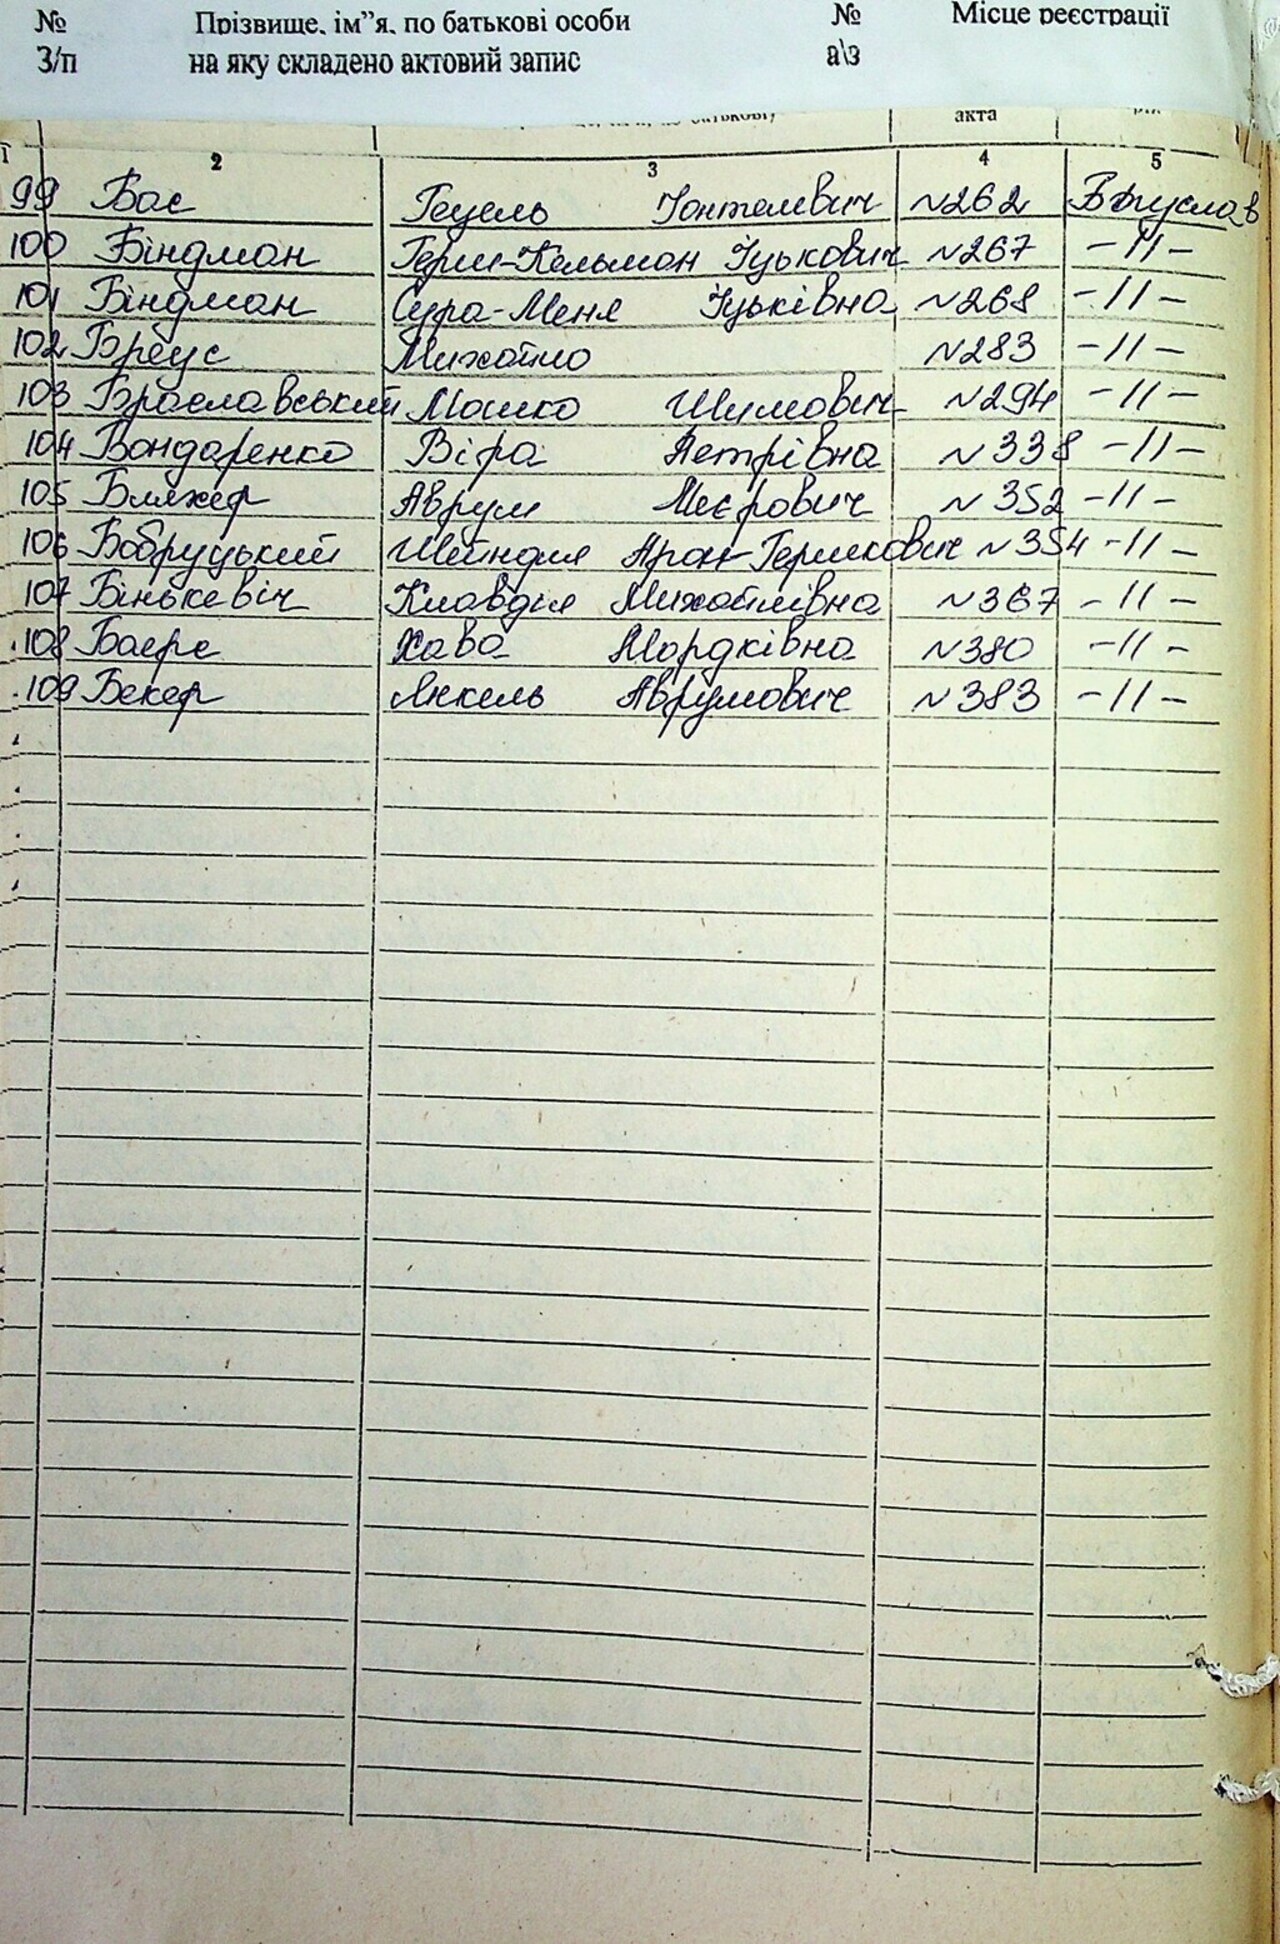 № Прізвище, ім”я, по батькові особи № Місце реєстрації
З/п на яку складено актовий запис а\з
акта
1 2 3 4 5
99 Бас Гецель Іонтелвич №262 Богуслав
100 Біндман Герш-Кельман Іцькович №267 -11-
101 Біндман Сура-Меня Іцьківна №268 -11-
102 Бреус Михайло №283 -11-
103 Браславський Мошко Шумович №294 -11-
104 Бондаренко Віра Петрівна №338 -11-
105 Бляхер Аврум Меєрович №352 -11-
106 Бобруцький Шейндля Арон-Гершкович №354 -11-
107 Бінькевіч Клавдія Михайлівна №367 -11-
108 Баєрс Хава Мордківна №380 -11-
109 Бекер Янкель Аврумович №383 -11-